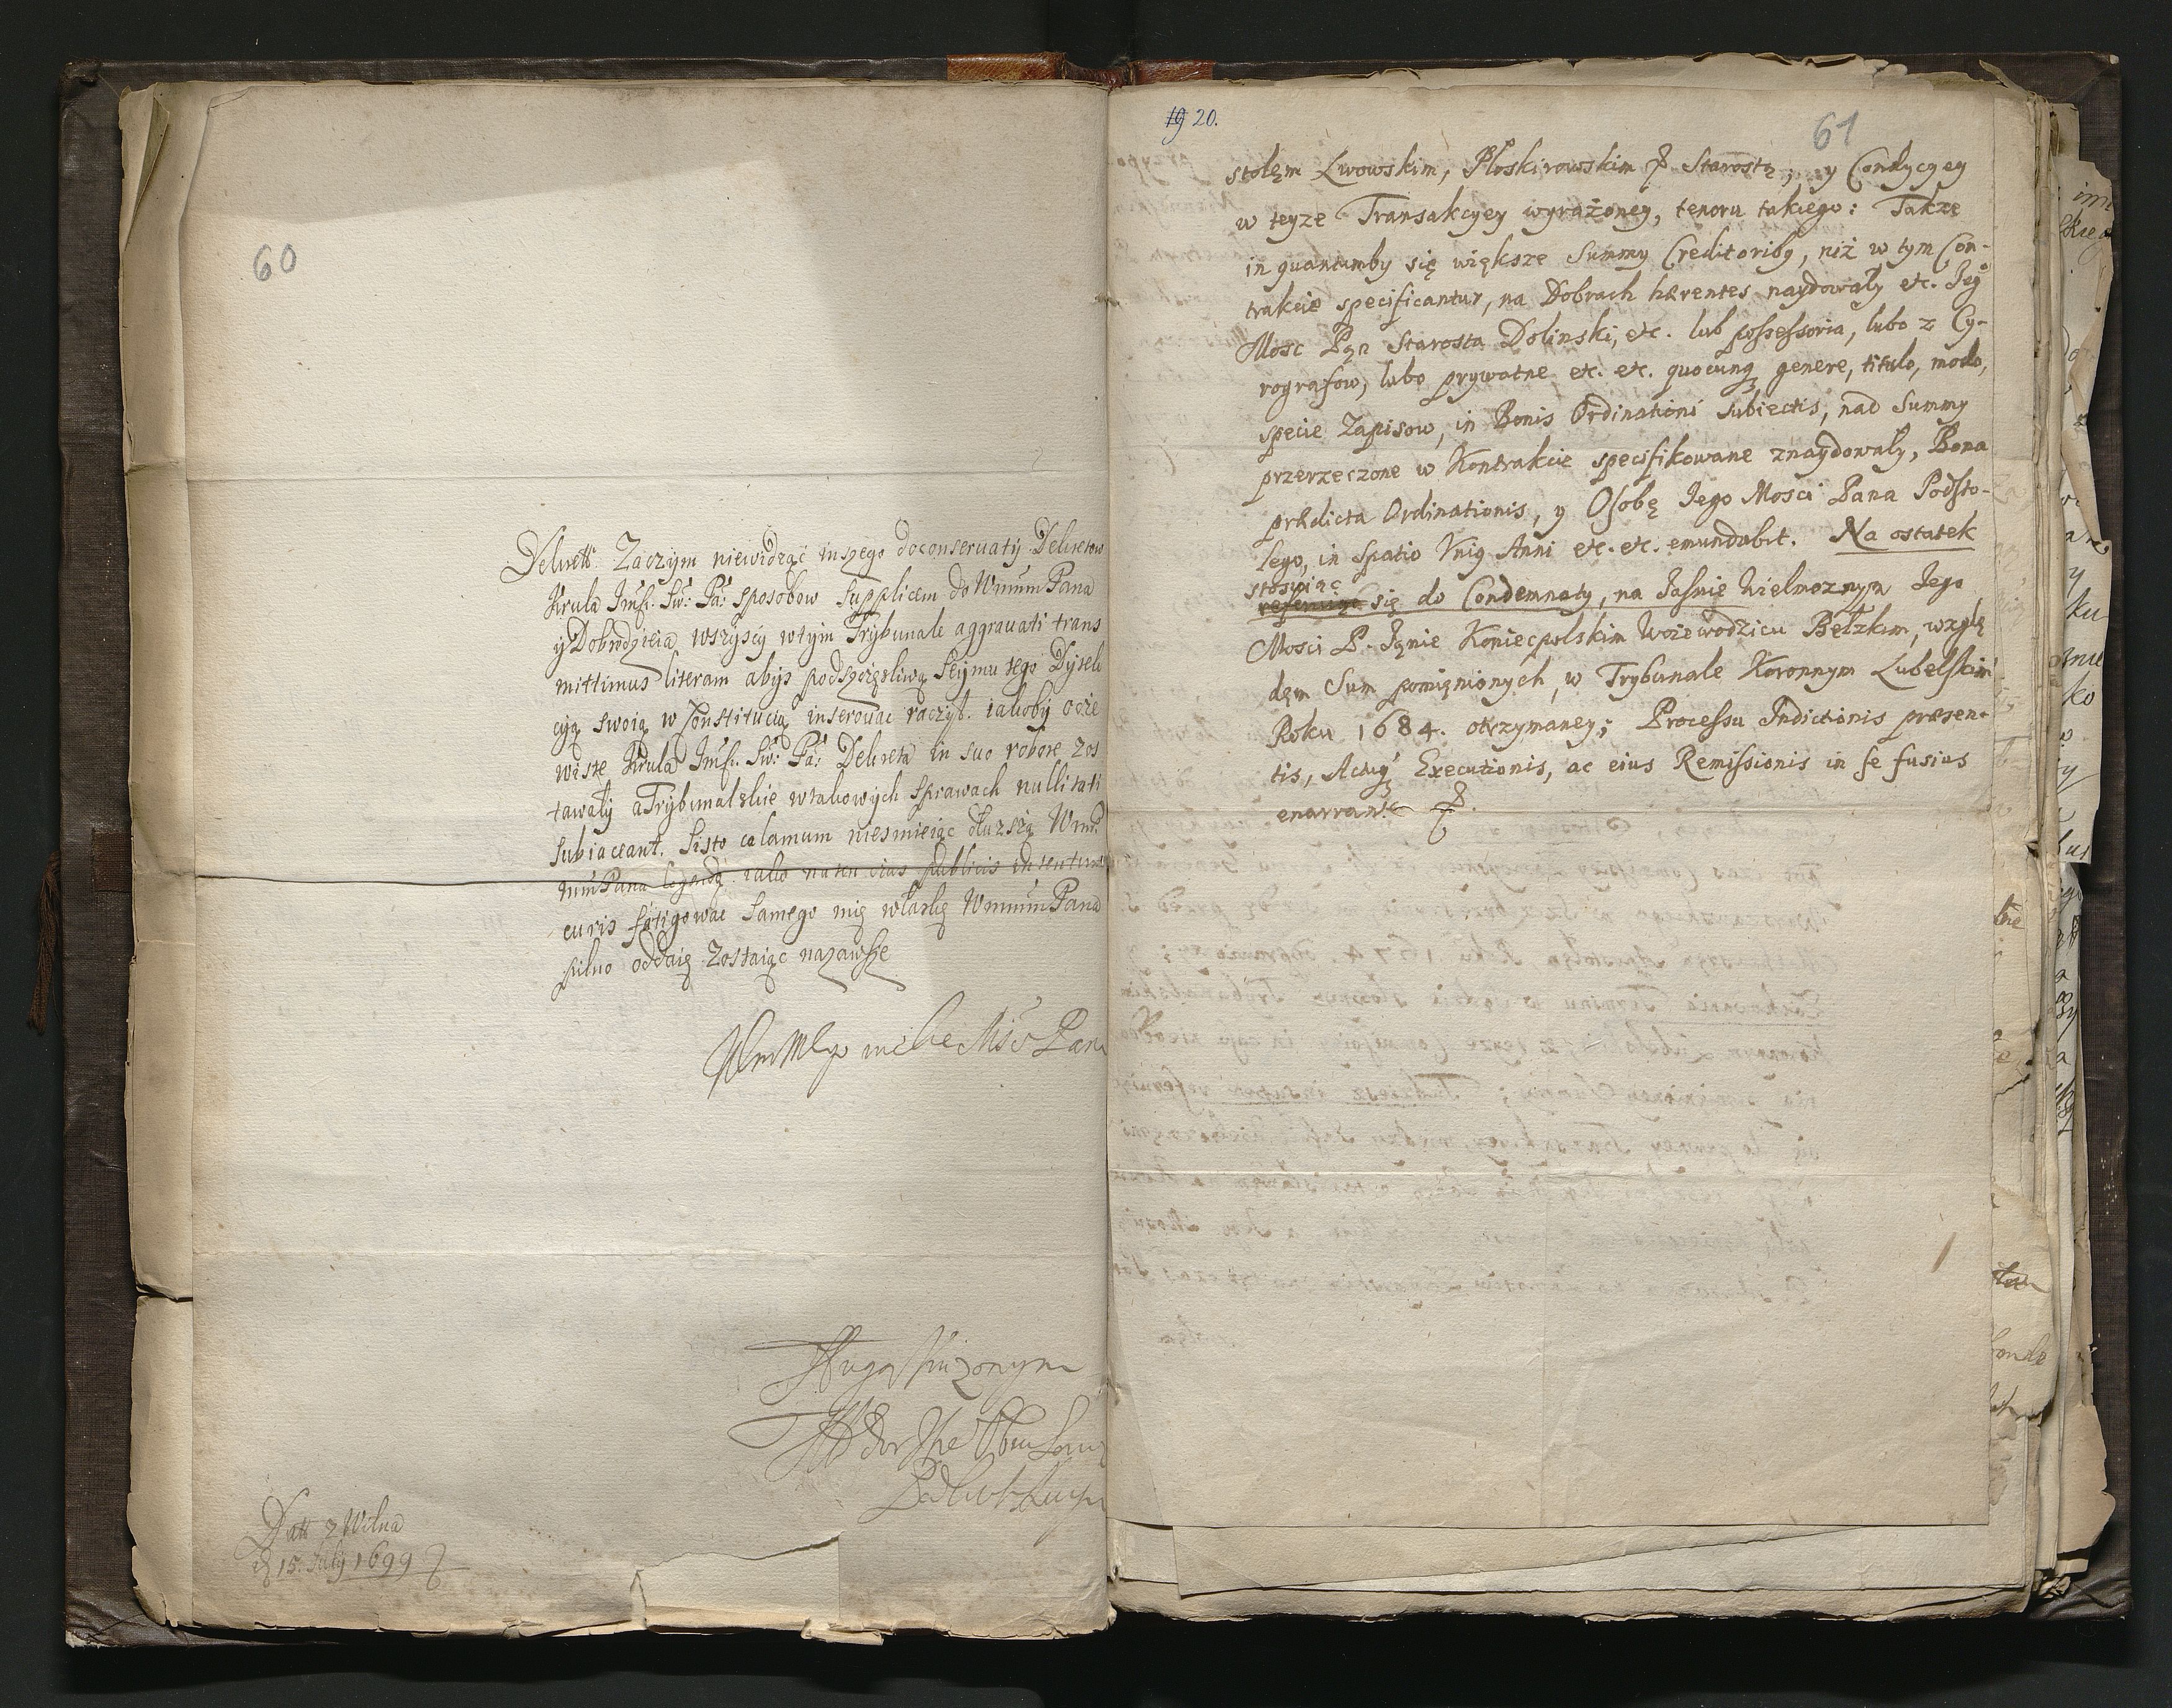 60
Dekrett. Zaczym niewidząc inszego doconseruatij Dekretow
Krula Jmśi. Św: Pa: sposobow supplicem do Wmūm Pana
ÿ Dobrodzieia wszÿscÿ wtÿm Trÿbunale aggrauati trans
mittimus literam abÿs podszczęsliwą Seÿmu tego Dÿrek
cÿą swoią w Constitucią inserowac raczÿł. iakobÿ ocze
wiste Krula Jmśi. Św: Pa: Dekreta in suo robore zos
tawałÿ a Trÿbunalskie wtakowÿch sprawach nullitati
subiaceant. Sisto calamum niesmieiąc dłuzszą Wm
mūm Pana legendą iako naten czas publicis intentum
curis fatigowac samego mię właskę Wmmūm Pana
pilno oddaię zostaiąc nazawsze
Pana
Sługą unizonym
Datt z Wilna
d 15. July 1699
19 20.
61
stolęm Lwowskim, Płoskirowskim Starostą; y Condycyey
w teyze Transakcyey wyrażoney, tenoru takiego: Takze
in quantumby się większe Summy Creditoribg, niż w tym Con-
trakcie specificantur, na Dobrach hærentes naydowały etc. Jeg͠o
Mosc Pąn Starosta Dolinski, etc. lub possessoria, lubo z Cy-
rografow, lubo prywatne etc. etc. quocunq genere, titulo, modo,
specie Zapisow, in Bonis Ordinationi subiectis, nad Summy
przerzeczone w Kontrakcie specifikowane znaydowały, Bona
prædicta Ordinationis, y Osobę Jego Mosci Pana Podsto-
lego, in spatio Vnig Anni etc. etc. emundabit. Na ostatek
stosuiąc
referuiąc się do Condemnaty, na Jaśnie Wielmoznym Jego
Mosci P. Janie Koniecpolskim Woiewodzicu Bełzkim, wzglę
dęm Sum pomięnionych, w Trybunale Koronnym Lubelskim
Roku 1684. otrzymaney; Processu Indictionis præsen-
tis, Actug Executionis, ac eius Remissionis in se fusius
enarrant